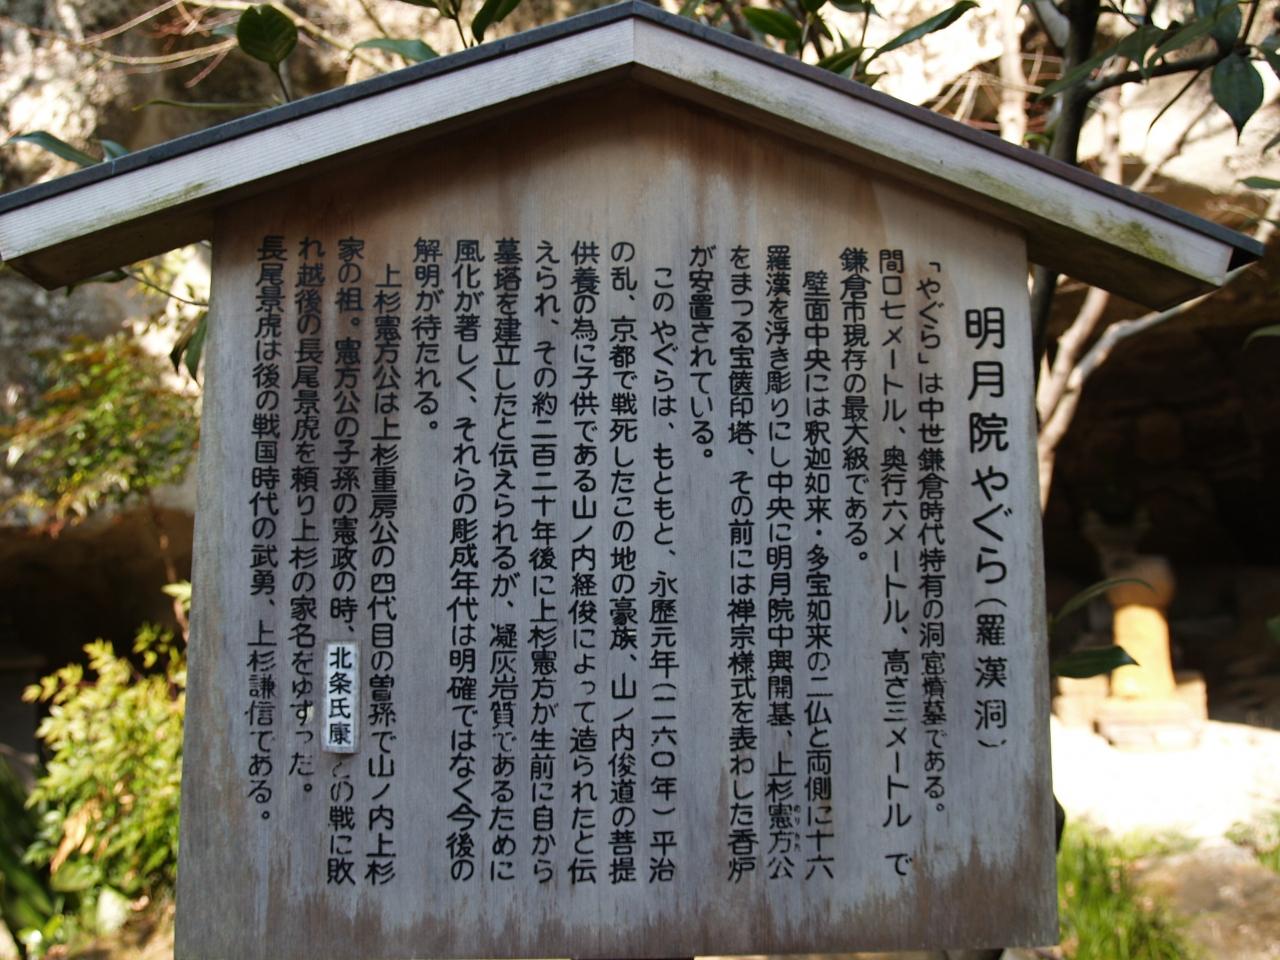 明月院やぐら(羅漢洞)
「やぐら」は中世鎌倉時代特有の洞窟墳墓である。
間口七メートル、奥行六メートル、高さ三メートル で
鎌倉市現存の最大級である。
壁面中央には釈迦如来・多宝如来の二仏と両側に十六
羅漢を浮き彫りにし中央に明月院中興開基、上杉憲方公
をまつる宝篋印塔、その前には禅宗様式を表わした香炉
が安置されている。
このやぐらは、もともと、永歴元年(一一六〇年)平治
の乱、京都で戦死したこの地の豪族、山ノ内俊道の菩提
供養の為に子供である山ノ内経俊によって造られたと伝
えられ、その約二百二十年後に上杉憲方が生前に自から
墓塔を建立したと伝えられるが、凝灰岩質であるために
風化が著しく、それらの彫成年代は明確ではなく今後の
解明が待たれる。
上杉憲方公は上杉重房公の四代目の曽孫で山ノ内上杉
家の祖。憲方公の子孫の憲政の時、北条氏康との戦に敗
れ越後の長尾景虎を頼り上杉の家名をゆずった。
長尾景虎は後の戦国時代の武勇、上杉謙信である。